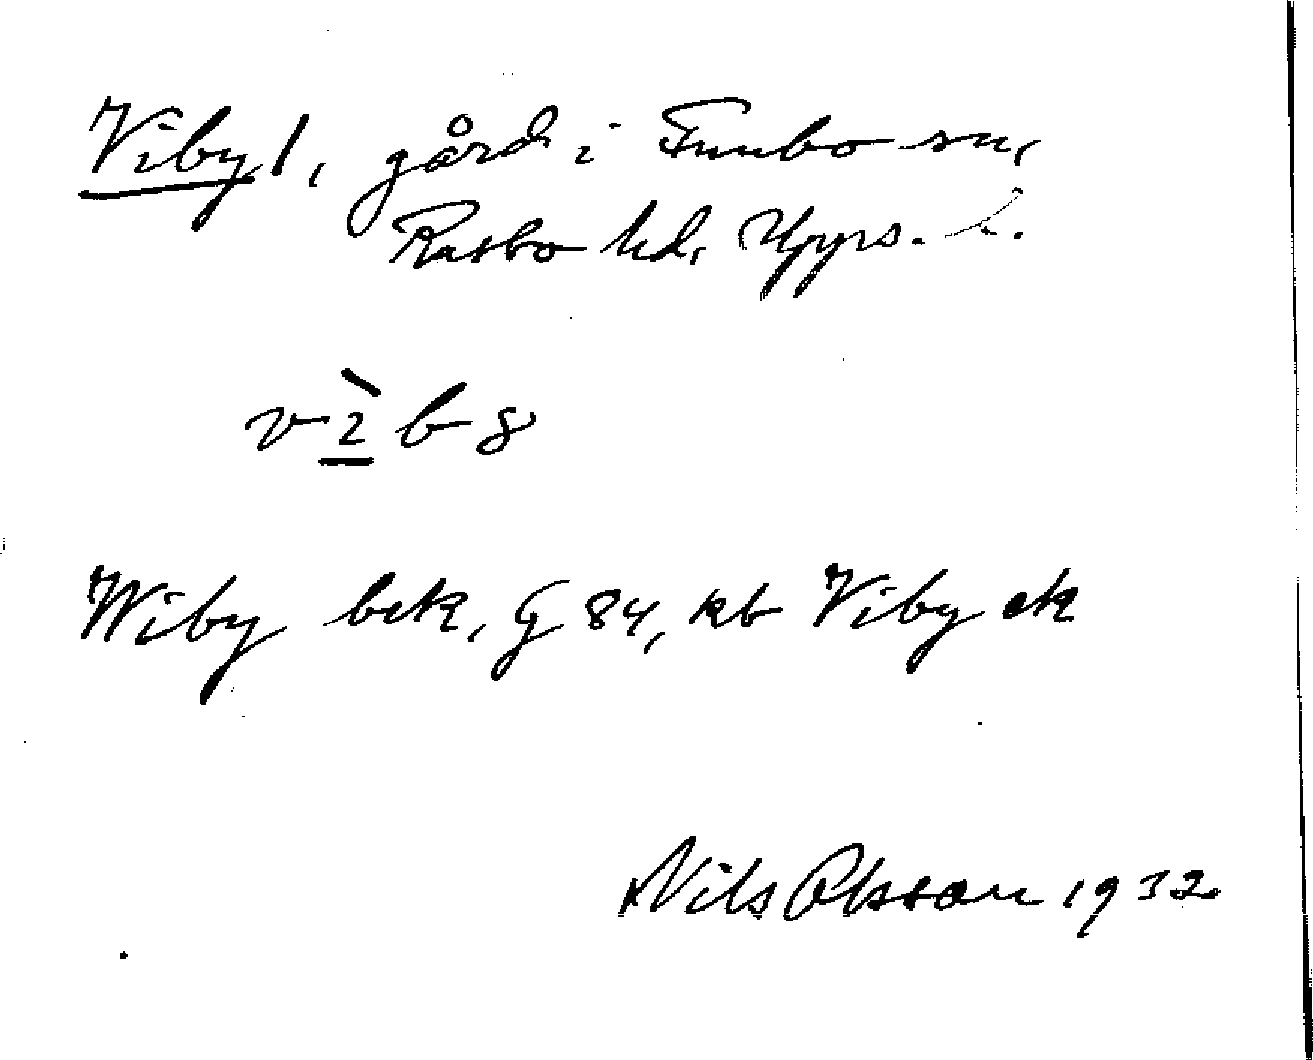 Viby 1, gård i Funbo sn,
Rasbo hd, Upps. l.
vìbȣ
Wiby bek, G 84, kb Viby ek
Nils Olsson 1932